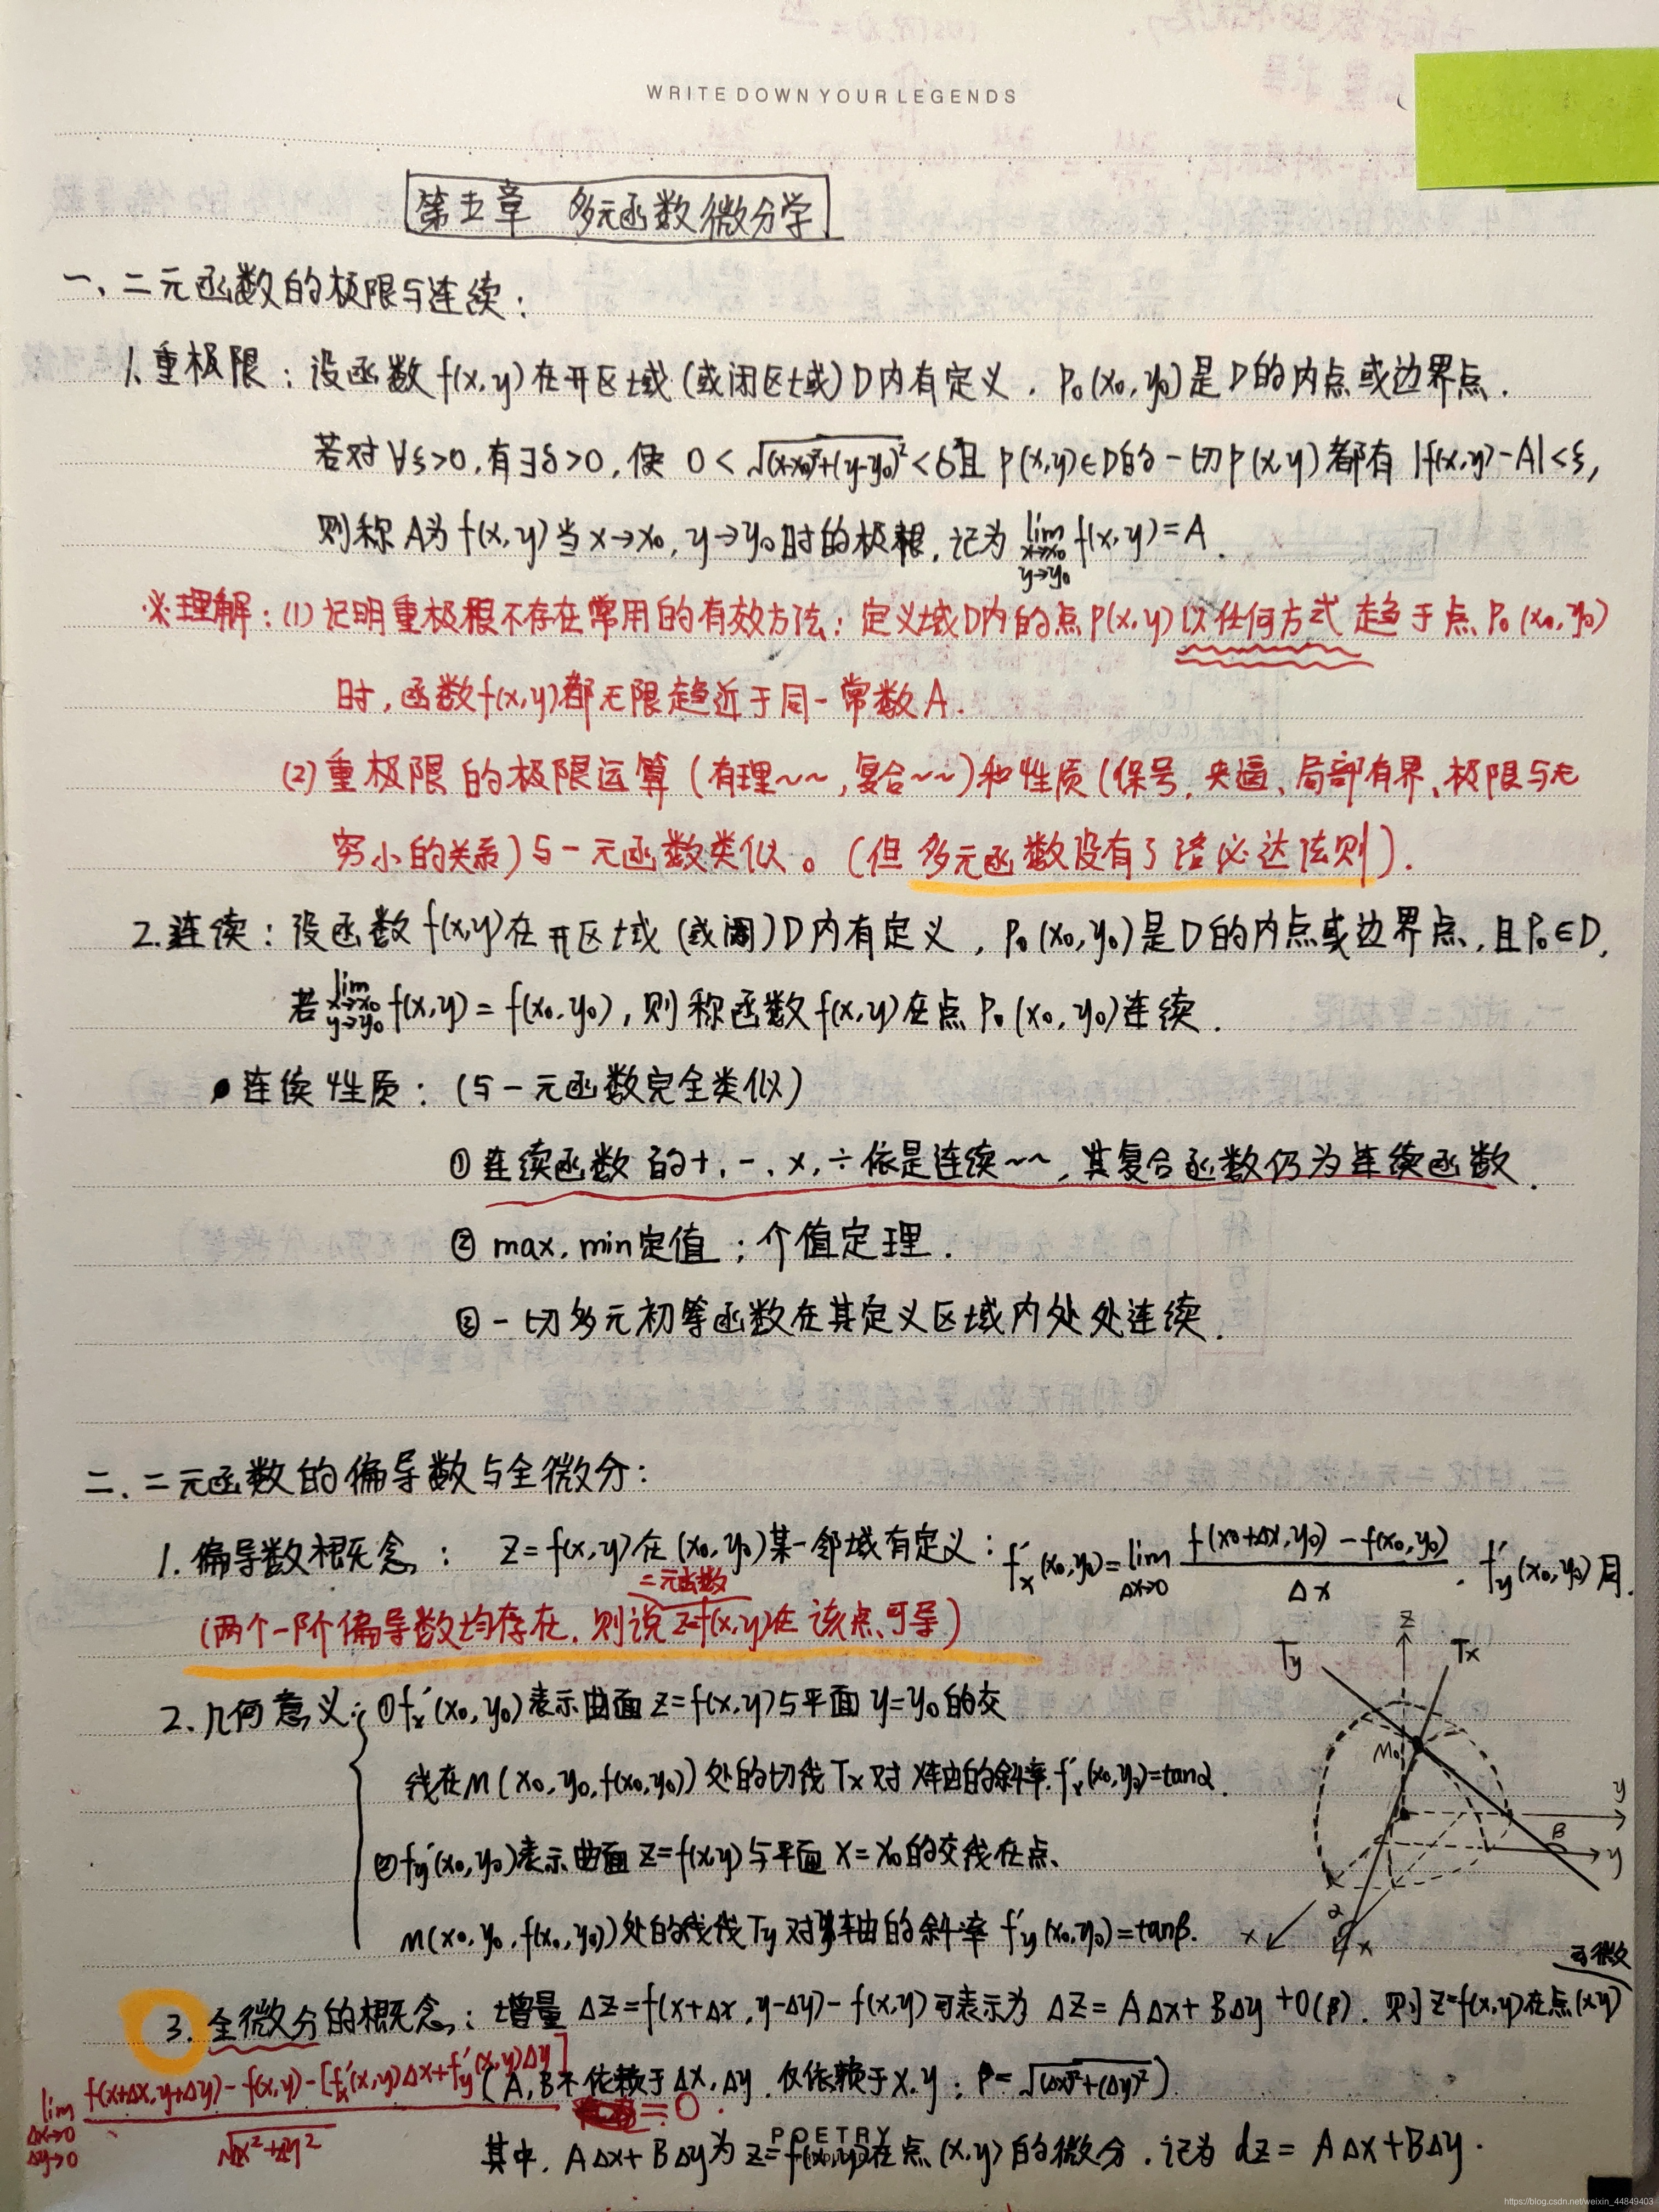 WRITE DOWN YOUR LEGENDS
第五章 多元函数微分学
一、二元函数的极限与连续：
1.重极限：设函数f(x,y)在开区域(或闭区域)D内有定义．P₀(x₀,y₀)是D的内点或边界点．
若对∀ξ>0,有∃δ>0,使 0<√((x+x₀)²+(y-y₀)²)<δ且P(x,y)∈D的一切P(x,y)都有|f(x,y)-A|<ξ,
则称A为f(x,y)当x→x₀,y→y₀时的极限，记为 lim x→x₀ y→y₀ f(x,y)=A．
理解：(1)证明重极限不存在常用的有效方法：定义域D内的点P(x,y)以任何方式趋于点P₀(x₀,y₀)
时,函数f(x,y)都无限趋近于同一常数A．
(2)重极限的极限运算(有理~~,复合~~)和性质(保号、夹逼、局部有界、极限与无
穷小的关系)与一元函数类似。(但多元函数没有了洛必达法则)．
2.连续：设函数f(x,y)在开区域(或闭)D内有定义，P₀(x₀,y₀)是D的内点或边界点，且P₀∈D,
若 lim x→x₀ y→y₀ f(x,y)=f(x₀,y₀),则称函数f(x,y)在点P₀(x₀,y₀)连续．
●连续性质：(与一元函数完全类似)
①连续函数的+、-、×、÷依是连续~~,其复合函数仍为连续函数．
② max,min定值；介值定理．
③一切多元初等函数在其定义区域内处处连续．
二、二元函数的偏导数与全微分：
1.偏导数概念：z=f(x,y)在(x₀,y₀)某一邻域有定义：f'x(x₀,y₀)=lim Δx→0 (f(x₀+Δx,y₀)-f(x₀,y₀))/Δx．f'y(x₀,y₀)同．
二元函数
(两个一阶偏导数均存在,则说z=f(x,y)在该点可导)
2.几何意义：①f'x(x₀,y₀)表示曲面z=f(x,y)与平面y=y₀的交
线在M(x₀,y₀,f(x₀,y₀))处的切线Tx对x轴的斜率.f'x(x₀,y₀)=tanα．
②f'y(x₀,y₀)表示曲面z=f(x,y)与平面x=x₀的交线在点
M(x₀,y₀,f(x₀,y₀))处的线线Ty对y轴的斜率f'y(x₀,y₀)=tanβ．
z
Ty
Tx
M₀
y
β
y
α
x
x
可微
3.全微分的概念：增量 Δz=f(x+Δx,y-Δy)-f(x,y)可表示为 Δz=AΔx+BΔy+O(ρ)．则z=f(x,y)在点(x,y)
(A,B不依赖于Δx,Δy．仅依赖于x,y；ρ=√((Δx)²+(Δy)²))
lim Δx→0 Δy→0 (f(x+Δx,y+Δy)-f(x,y)-[f'x(x,y)Δx+f'y(x,y)Δy])/√(Δx²+Δy²) =0．
其中，AΔx+BΔy为z=f(x,y)在点(x,y)的微分．记为dz=AΔx+BΔy．
POETRY
https://blog.csdn.net/weixin_44849403